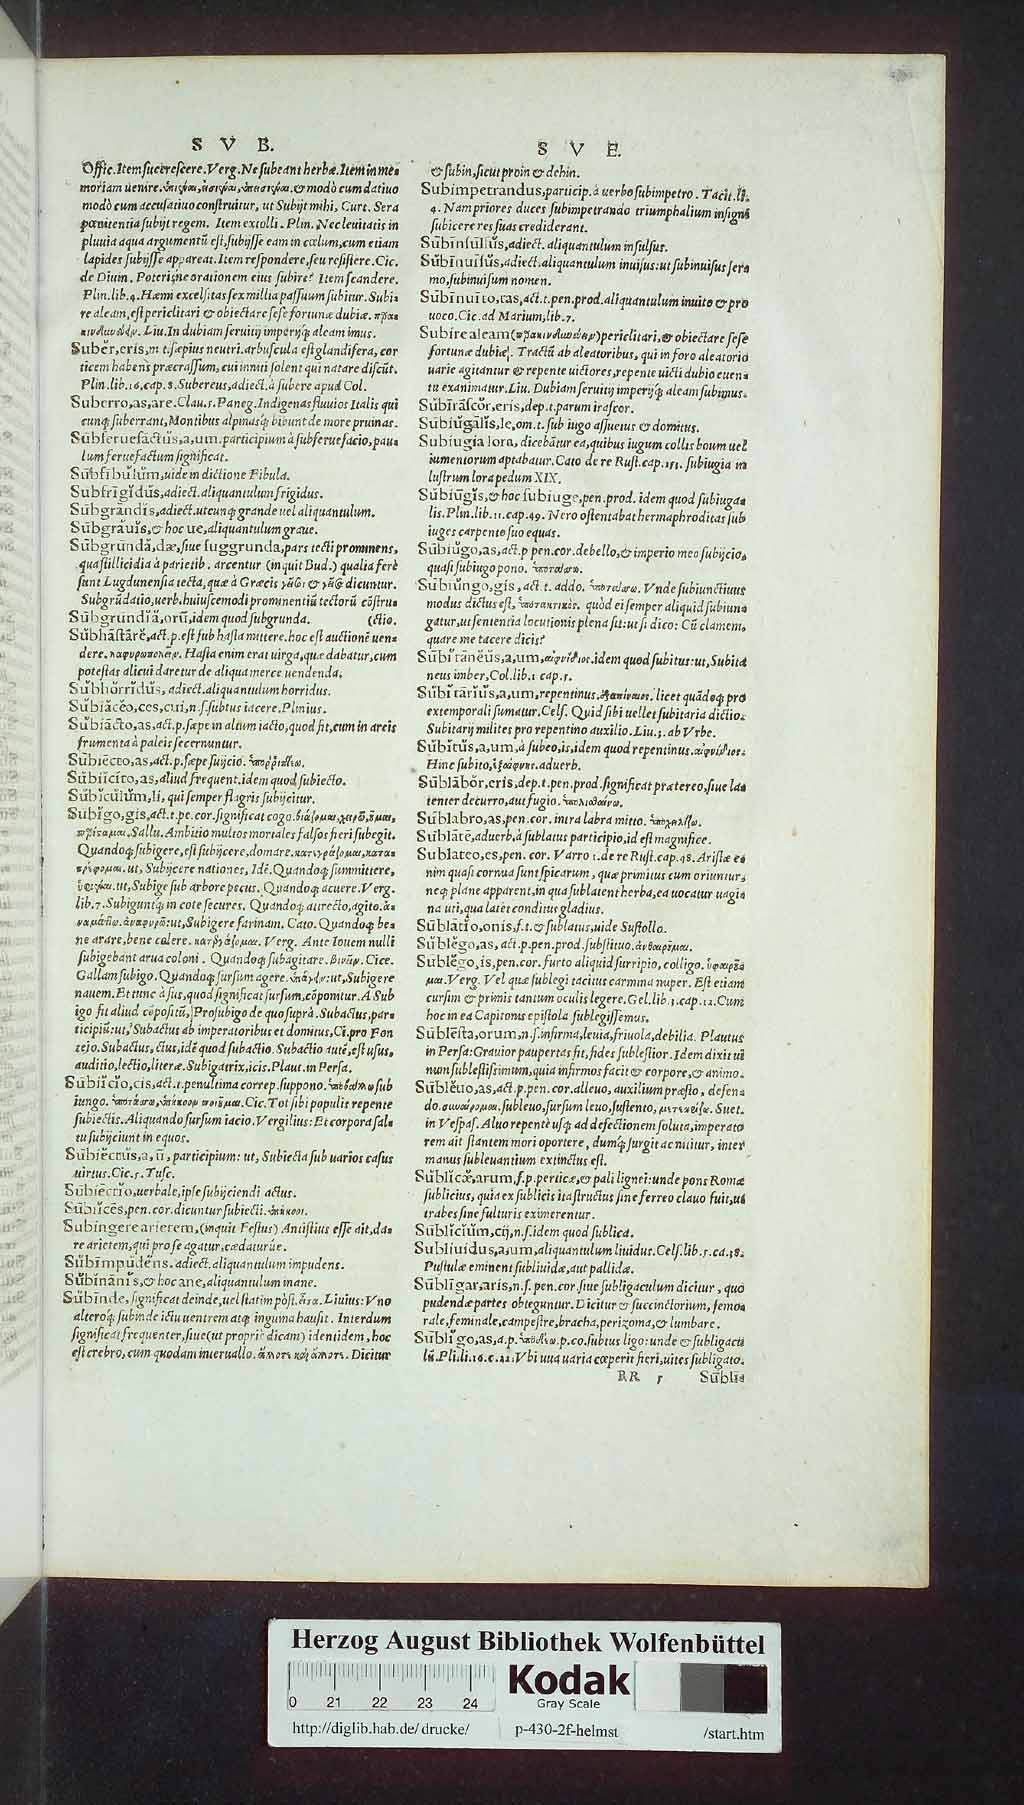 S V B.
Offic. Item succrescere. Verg. Ne subeant herbæ. Item in me=
moriam uenire. & modò cum datiuo
modò cum accusatiuo construitur, ut Subijt mihi, Curt. Sera
pœnitentia subijt regem. Item extolli. Plin. Nec leuitatis in
pluuia aqua argumentū est, subijsse eam in cœlum, cum etiam
lapides subijsse appareat. Item respondere, seu resistere. Cic.
de Diuin. Poterisne orationem eius subire? Item scandere.
Plin. lib. 4. Hæmi excelsitas sex millia passuum subitur. Subi=
re aleam, est periclitari & obiectare sese fortunæ dubiæ.
Liu. In dubiam seruitij imperijq; aleam imus.
Suber, eris, m t. sæpius neutri. arbuscula est glandifera, cor
ticem habens præcrassum, cui inniti solent qui natare discūt.
Plin. lib. 16. cap. 8. Subereus, adiect. à subere apud Col.
Suberro, as, are. Clau. 5. Paneg. Indigenas fluuios Italis qui
cunq; suberrant, Montibus alpinasq; bibunt de more pruinas.
Subferuefactus, a, um. participium à subferuefacio, pau=
lum feruefactum significat.
Subfibulum, uide in dictione Fibula.
Subfrigidus, adiect. aliquantulum frigidus.
Subgrandis, adiect. utcunq; grande uel aliquantulum.
Subgrauis, & hoc ue, aliquantulum graue.
Subgrunda, dæ, siue suggrunda, pars tecti prominens,
qua stillicidia à parietib. arcentur (inquit Bud.) qualia ferè
sunt Lugdunensia tecta, quæ à Græcis & dicuntur.
Subgrūdatio, uerb. huiuscemodi prominentiū tectorū cōstru=
Subgrundia, orū, idem quod subgrunda. (ctio.
Subhastare, act. p. est sub hasta mittere. hoc est auctionē uen=
dere. Hasta enim erat uirga, quæ dabatur, cum
potestas alicui daretur de aliqua merce uendenda.
Subhorridus, adiect. aliquantulum horridus.
Subiaceo, ces, cui, n. s. subtus iacere. Plinius.
Subiacto, as, act. p. sæpe in altum iacto, quod fit, cum in areis
frumenta à paleis secernuntur.
Subiecto, as, act. p. sæpe suijcio.
Subijcito, as, aliud frequent. idem quod subiecto.
Subiculum, li, qui semper flagris subijcitur.
Subigo, gis, act. t. pe. cor. significat cogo.
Sallu. Ambitio multos mortales falsos fieri subegit.
Quandoq; subigere, est subijcere, domare.
ut, Subijcere nationes, Idē. Quandoq; summittere,
ut, Subige sub arbore pecus. Quandoq; acuere. Verg.
lib. 7. Subiguntq; in cote secures. Quandoq; attrecto, agito.
ut, Subigere farinam. Cato. Quandoq; be=
ne arare, bene colere. Verg. Ante Iouem nulli
subigebant arua coloni. Quandoq; subagitare. Cice.
Gallam subigo. Quandoq; sursum agere. ut, Subigere
nauem. Et tunc à sus, quod significat sursum, cōponitur. A Sub
igo fit aliud cōpositū, Prosubigo de quo suprà. Subactus, par=
ticipiū: ut, Subactus ab imperatoribus et domitus, Ci. pro Fon
teio. Subactus, ctus, idē quod subactio. Subactio autē, est usus,
auditio, lectio, literæ. Subigatrix, icis. Plaut. in Persa.
Subijcio, cis, act. t. penultima correp. suppono. sub
iungo. Cic. Tot sibi populis repente
subiectis. Aliquando sursum iacio. Vergilius: Et corpora sal=
tu subijciunt in equos.
Subiectus, a, ū, participium: ut, Subiecta sub uarios casus
uirtus. Cic. 5. Tusc.
Subiectio, uerbale, ipse subijciendi actus.
Subijces, pen. cor. dicuntur subiecti.
Subingere arietem, (inquit Festus) Antistius esse ait, da=
re arietem, qui pro se agatur, cædatur ue.
Subimpudens. adiect. aliquantulum impudens.
Subinanis, & hoc ane, aliquantulum inane.
Subinde, significat deinde, uel statim pòst. Liuius: Vno
alteroq; subinde ictu uentrem atq; inguina hausit. Interdum
significat frequenter, siue (ut proprie dicam) identidem, hoc
est crebro, cum quodam interuallo. Dicitur
S V E.
& subin, sicut proin & dehin.
Subimpetrandus, particip. à uerbo subimpetro. Tacit. li.
4. Nam priores duces subimpetrando triumphalium insigni
subicere res suas crediderant.
Subinsulsus, adiect. aliquantulum insulsus.
Subinuisus, adiect. aliquantulum inuisus: ut subinuisus sera
mo, subinuisum nomen.
Subinuito, tas, act. t. pen. prod. aliquantulum inuito & pro
uoco. Cic. ad Marium, lib. 7.
Subire aleam periclitari, & obiectare sese
fortunæ dubiæ. Tractū ab aleatoribus, qui in foro aleatorio
uarie agitantur & repente uictores, repente uicti dubio euen=
tu exanimatur. Liu. Dubiam seruitij imperijq; aleam subimus.
Subirascor, eris, dep. t. parum irascor.
Subiugalis, le, om. t. sub iugo assuetus & domitus.
Subiugia lora, dicebātur ea, quibus iugum collis boum uel
iumentorum aptabatur. Cato de re Rust. cap. 151. subiugia in
lustrum lora pedum XIX.
Subiugis, & hoc subiuge, pen. prod. idem quod subiuga=
lis. Plin. lib. 11. cap. 49. Nero ostentabat hermaphroditas sub
iuges carpento suo equas.
Subiugo, as, act. p pen. cor. debello, & imperio meo subijcio,
quasi subiugo pono.
Subiungo, gis, act. t. addo. Vnde subiunctiuus
modus dictus est, quòd ei semper aliquid subiun=
gatur, ut sententia locutionis plena sit: ut si dico: Cū clamem,
quare me tacere dicis?
Subitaneus, a, um, idem quod subitus: ut, Subita
neus imber, Col. lib. 1 cap. 5.
Subitarius, a, um, repentinus. licet quādoq; pro
extemporali sumatur. Cels. Quid sibi uellet subitaria dictio.
Subitarij milites pro repentino auxilio. Liu. 3. ab Vrbe.
Subitus, a, um, à subeo, is, idem quod repentinus.
Hinc subito, aduerb.
Sublabor, eris, dep. t. pen. prod. significat prætereo, siue la=
tenter decurro, aut fugio.
Sublabro, as, pen. cor. intra labra mitto.
Sublate, aduerb, à sublatus participio, id est magnifice.
Sublateo, es, pen. cor. Varro 1. de re Rust. cap. 48. Aristæ e=
nim quasi cornua sunt spicarum, quæ primitus cum oriuntur,
neq; plane apparent, in qua sublatent herba, ea uocatur uagi=
na uti, qua latēt conditus gladius.
Sublatio, onis, f. t. & sublatus, uide Sustollo.
Sublego, as, act. p. pen. prod. substituo.
Sublego, is, pen. cor. furto aliquid surripio, colligo.
Verg. Vel quæ sublegi tacitus carmina nuper. Est etiam
cursim & primis tantum oculis legere. Gel. lib. 3. cap. 12. Cum
hoc in ea Capitonis epistola sublegissemus.
Sublesta, orum, n. s. infirma, leuia, friuola, debilia. Plautus
in Persa: Grauior paupertas fit, fides sublestior. Idem dixit ui
num sublestissimum, quia infirmos facit & corpore, & animo.
Subleuo, as, act. p. pen. cor. alleuo, auxilium præsto, defen=
do. subleuo, sursum leuo, sustento, Suet.
in Vespas. Aluo repentè usq; ad defectionem soluta, imperato
rem ait stantem mori oportere, dumq; surgit ac nititur, inter
manus subleuantium extinctus est.
Sublicæ, arum, f. p. perticæ, & pali lignei: unde pons Romæ
sublicius, quia ex sublicis ita structus sine ferreo clauo fuit, ut
trabes sine fulturis eximerentur.
Sublicium, cij, n. s. idem quod sublica.
Subliuidus, a, um, aliquantulum liuidus. Cels. lib. 5. ca. 28.
Pustulæ eminent subliuidæ, aut pallidæ.
Subligar, aris, n. s. pen. cor. siue subligaculum dicitur, quo
pudendæ partes obteguntur. Dicitur & succinctorium, femo=
rale, feminale, campestre, bracha, perizoma, & lumbare.
Subligo, as, a. p. p. co. subtus ligo: unde & subligacu
lū. Pli. li. 16. c. 22: Vbi uua uaria cœperit fieri, uites subligato.
RR 5 Sublī=
Herzog August Bibliothek Wolfenbüttel
0 21 22 23 24
Kodak
Gray Scale
http://diglib.hab.de/drucke/ p-430-2f-helmst /start.htm